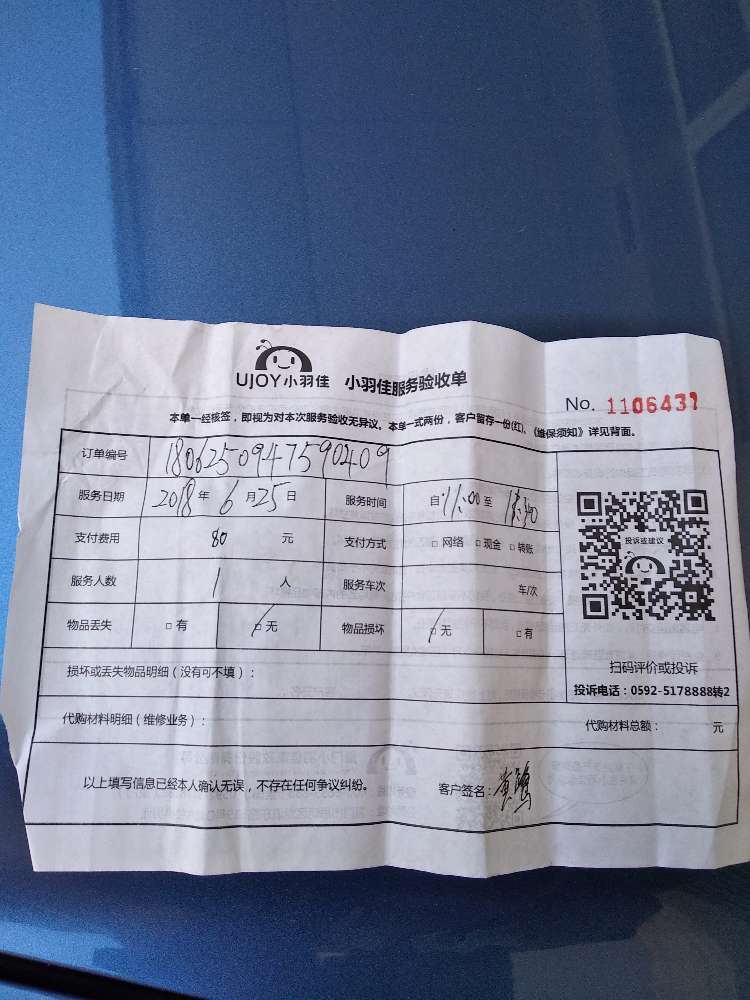 UJOY小羽佳 小羽佳服务验收单
No. 1106437
本单一经核签，即视为对本次服务验收无异议。本单一式两份，客户留存一份(红)，《维保须知》详见背面。
订单编号 1806250947590409
服务日期 2018年 6月25日 服务时间 自 11:00 至
支付费用 80 元 支付方式 □网络 □现金 □转账
服务人数 1 人 服务车次 车/次
物品丢失 □有 □无 物品损坏 □无 □有
投诉或建议
扫码评价或投诉
投诉电话：0592-5178888转2
损坏或丢失物品明细（没有可不填）：
代购材料明细（维修业务）： 代购材料总额： 元
以上填写信息已经本人确认无误，不存在任何争议纠纷。 客户签名：